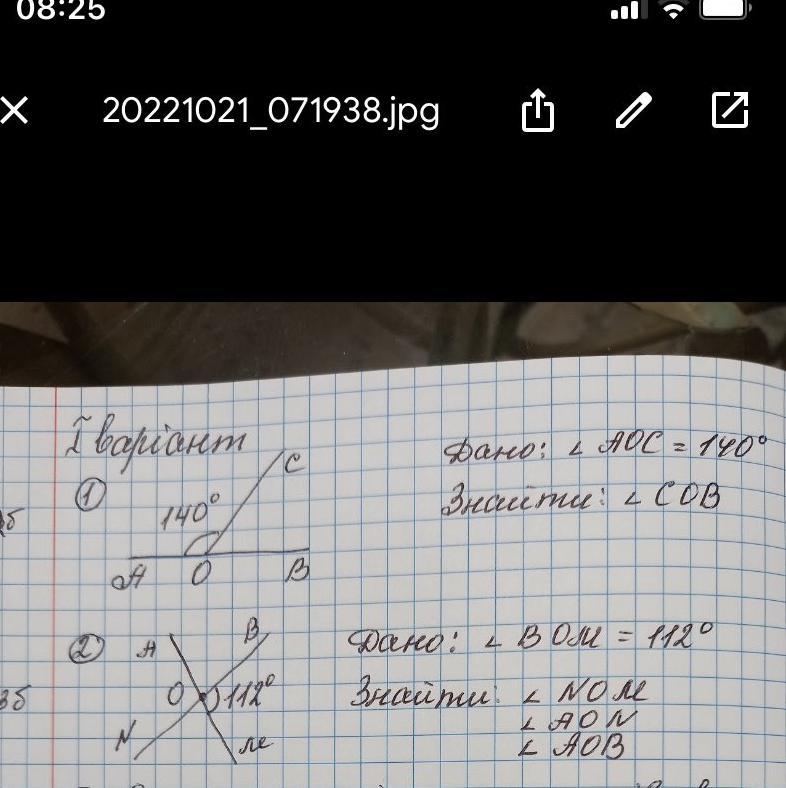 08:25
20221021_071938.jpg
І варіант
1
C
140°
A O B
Дано: ∠ AOC = 140°
Знайти: ∠ COB
2
A B
O 112°
N M
Дано: ∠ BOM = 112°
Знайти: ∠ NOM
∠ AON
∠ AOB